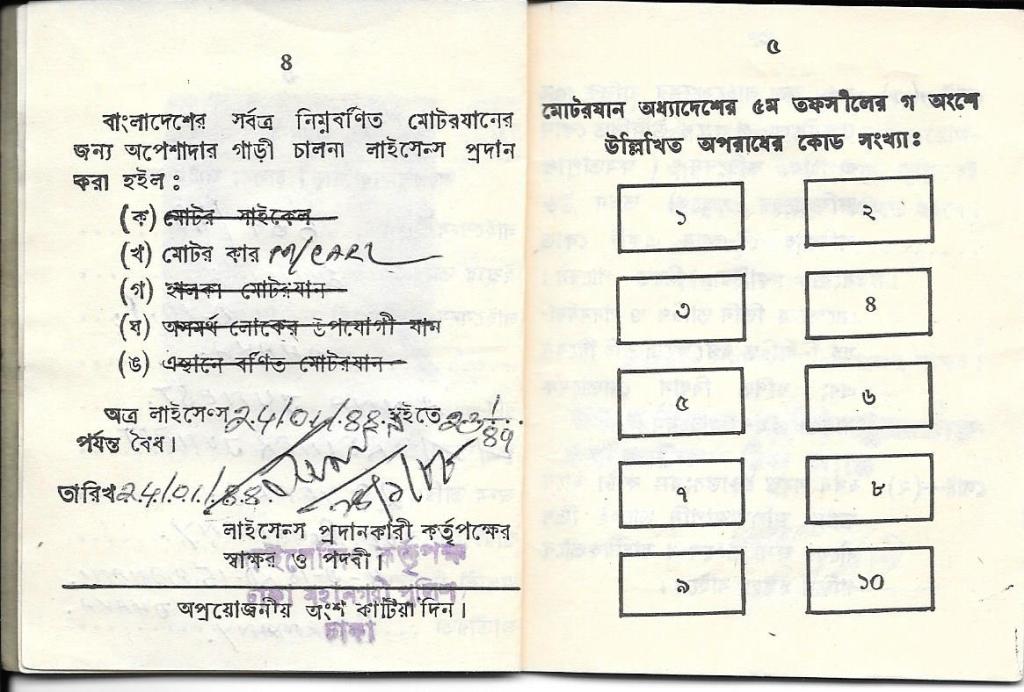 ৪
বাংলাদেশের সর্বত্র নিম্নবর্ণিত মোটরযানের
জন্য অপেশাদার গাড়ী চালনা লাইসেন্স প্রদান
করা হইল :
(ক) মোটর সাইকেল
(খ) মোটর কার M/CAR
(গ) হালকা মোটরযান
(ঘ) অসমর্থ লোকের উপযোগী যান
(ঙ) এস্থানে বর্ণিত মোটরযান
অত্র লাইসেন্স 24/01/88 হইতে 23/1/89
পর্যন্ত বৈধ।
তারিখ 24/01/88
লাইসেন্স প্রদানকারী কর্তৃপক্ষের
স্বাক্ষর ও পদবী।
লাইসেন্সিং কর্তৃপক্ষ
ঢাকা মহানগরী পুলিশ
ঢাকা
অপ্রয়োজনীয় অংশ কাটিয়া দিন।
৫
মোটরযান অধ্যাদেশের ৫ম তফসীলের গ অংশে
উল্লিখিত অপরাধের কোড সংখ্যাঃ
১ ২
৩ ৪
৫ ৬
৭ ৮
৯ ১০